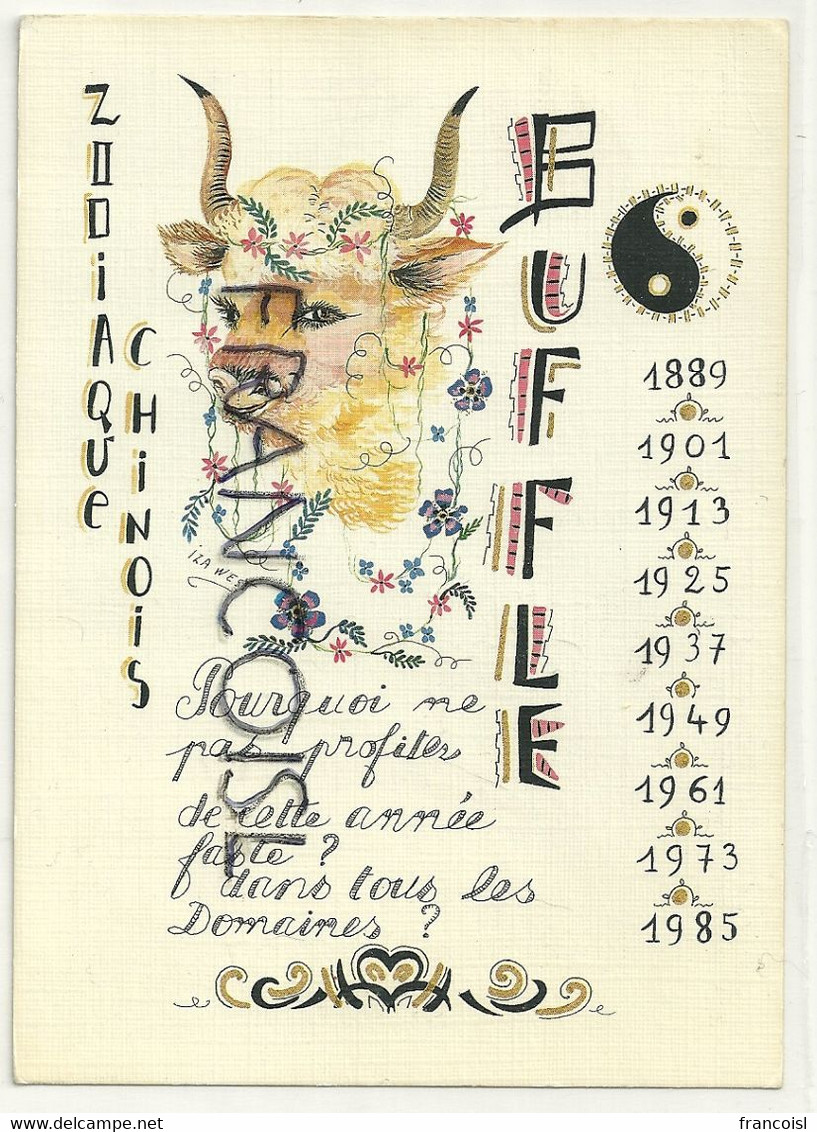 ZODIAQUE
CHINOIS
BUFFLE
1889
1901
1913
1925
1937
1949
1961
1973
1985
IZA WES
FRANCOISL
Pourquoi ne
pas profiter
de cette année
faste ?
dans tous les
Domaines ?
www.delcampe.net
francoisl